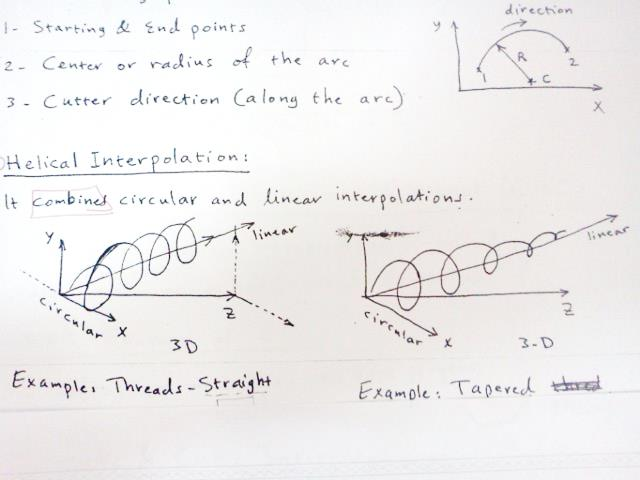 1- Starting & End points
2- Center or radius of the arc
3- Cutter direction (along the arc)
direction
y
R
1
2
C
X
Helical Interpolation:
It combines circular and linear interpolations.
y
linear
circular
X
Z
3D
y
linear
circular
X
Z
3-D
Example: Threads-Straight
Example: Tapered